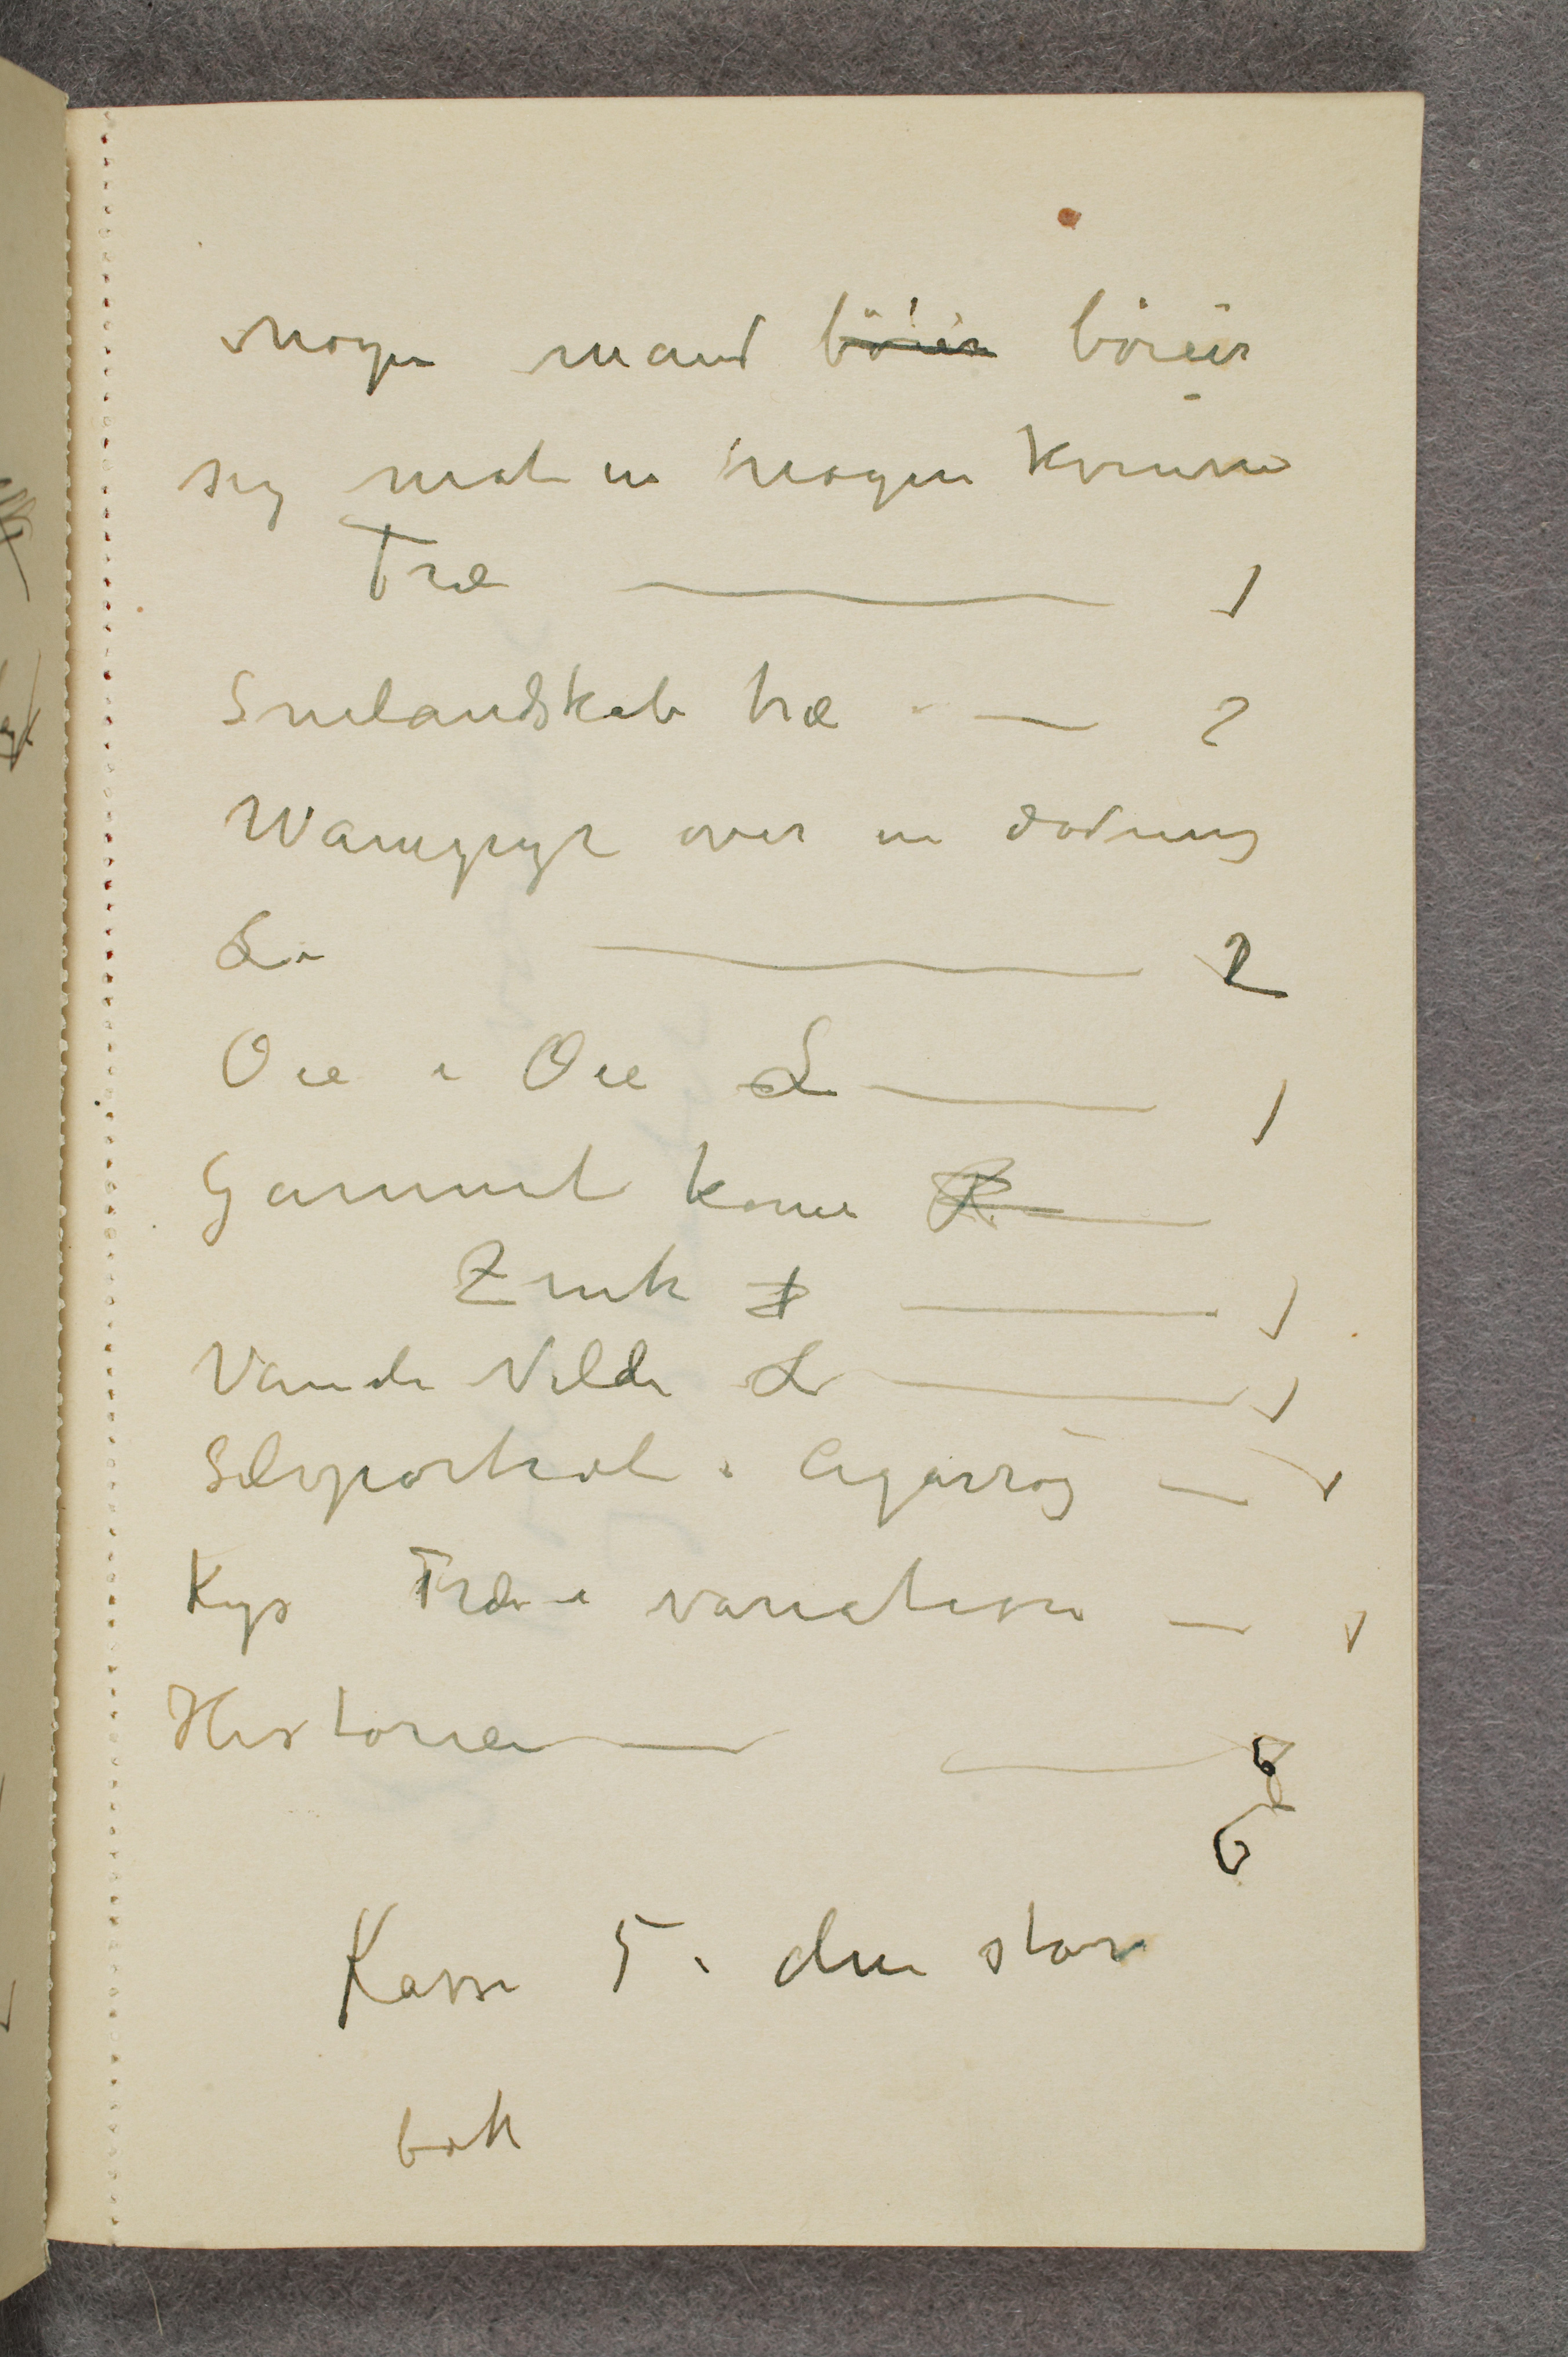 Nøgen mand böier böier
sig mot en nøgen kvinne
Træ — 1
Snelandskab træ — 2
Wampyyr over en dödning
L. — 2
Øie i Øie L — 1
Gammel kone L —
Zink 1 — 1
Van de Velde L — 1
Selvportræt i Cigarrøg — 1
Kys Træ i variation — 1
Historien — 6
6
Kasse 5 i den store
bok